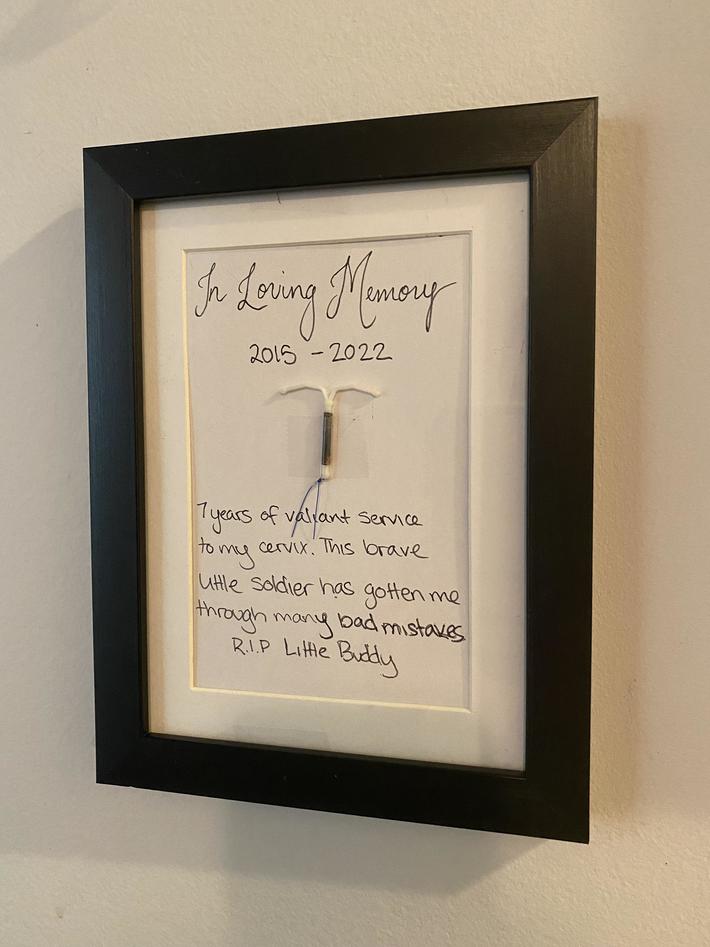 In Loving Memory
2015 - 2022
7 years of valiant service
to my cervix. This brave
little soldier has gotten me
through many bad mistakes
R.I.P Little Buddy